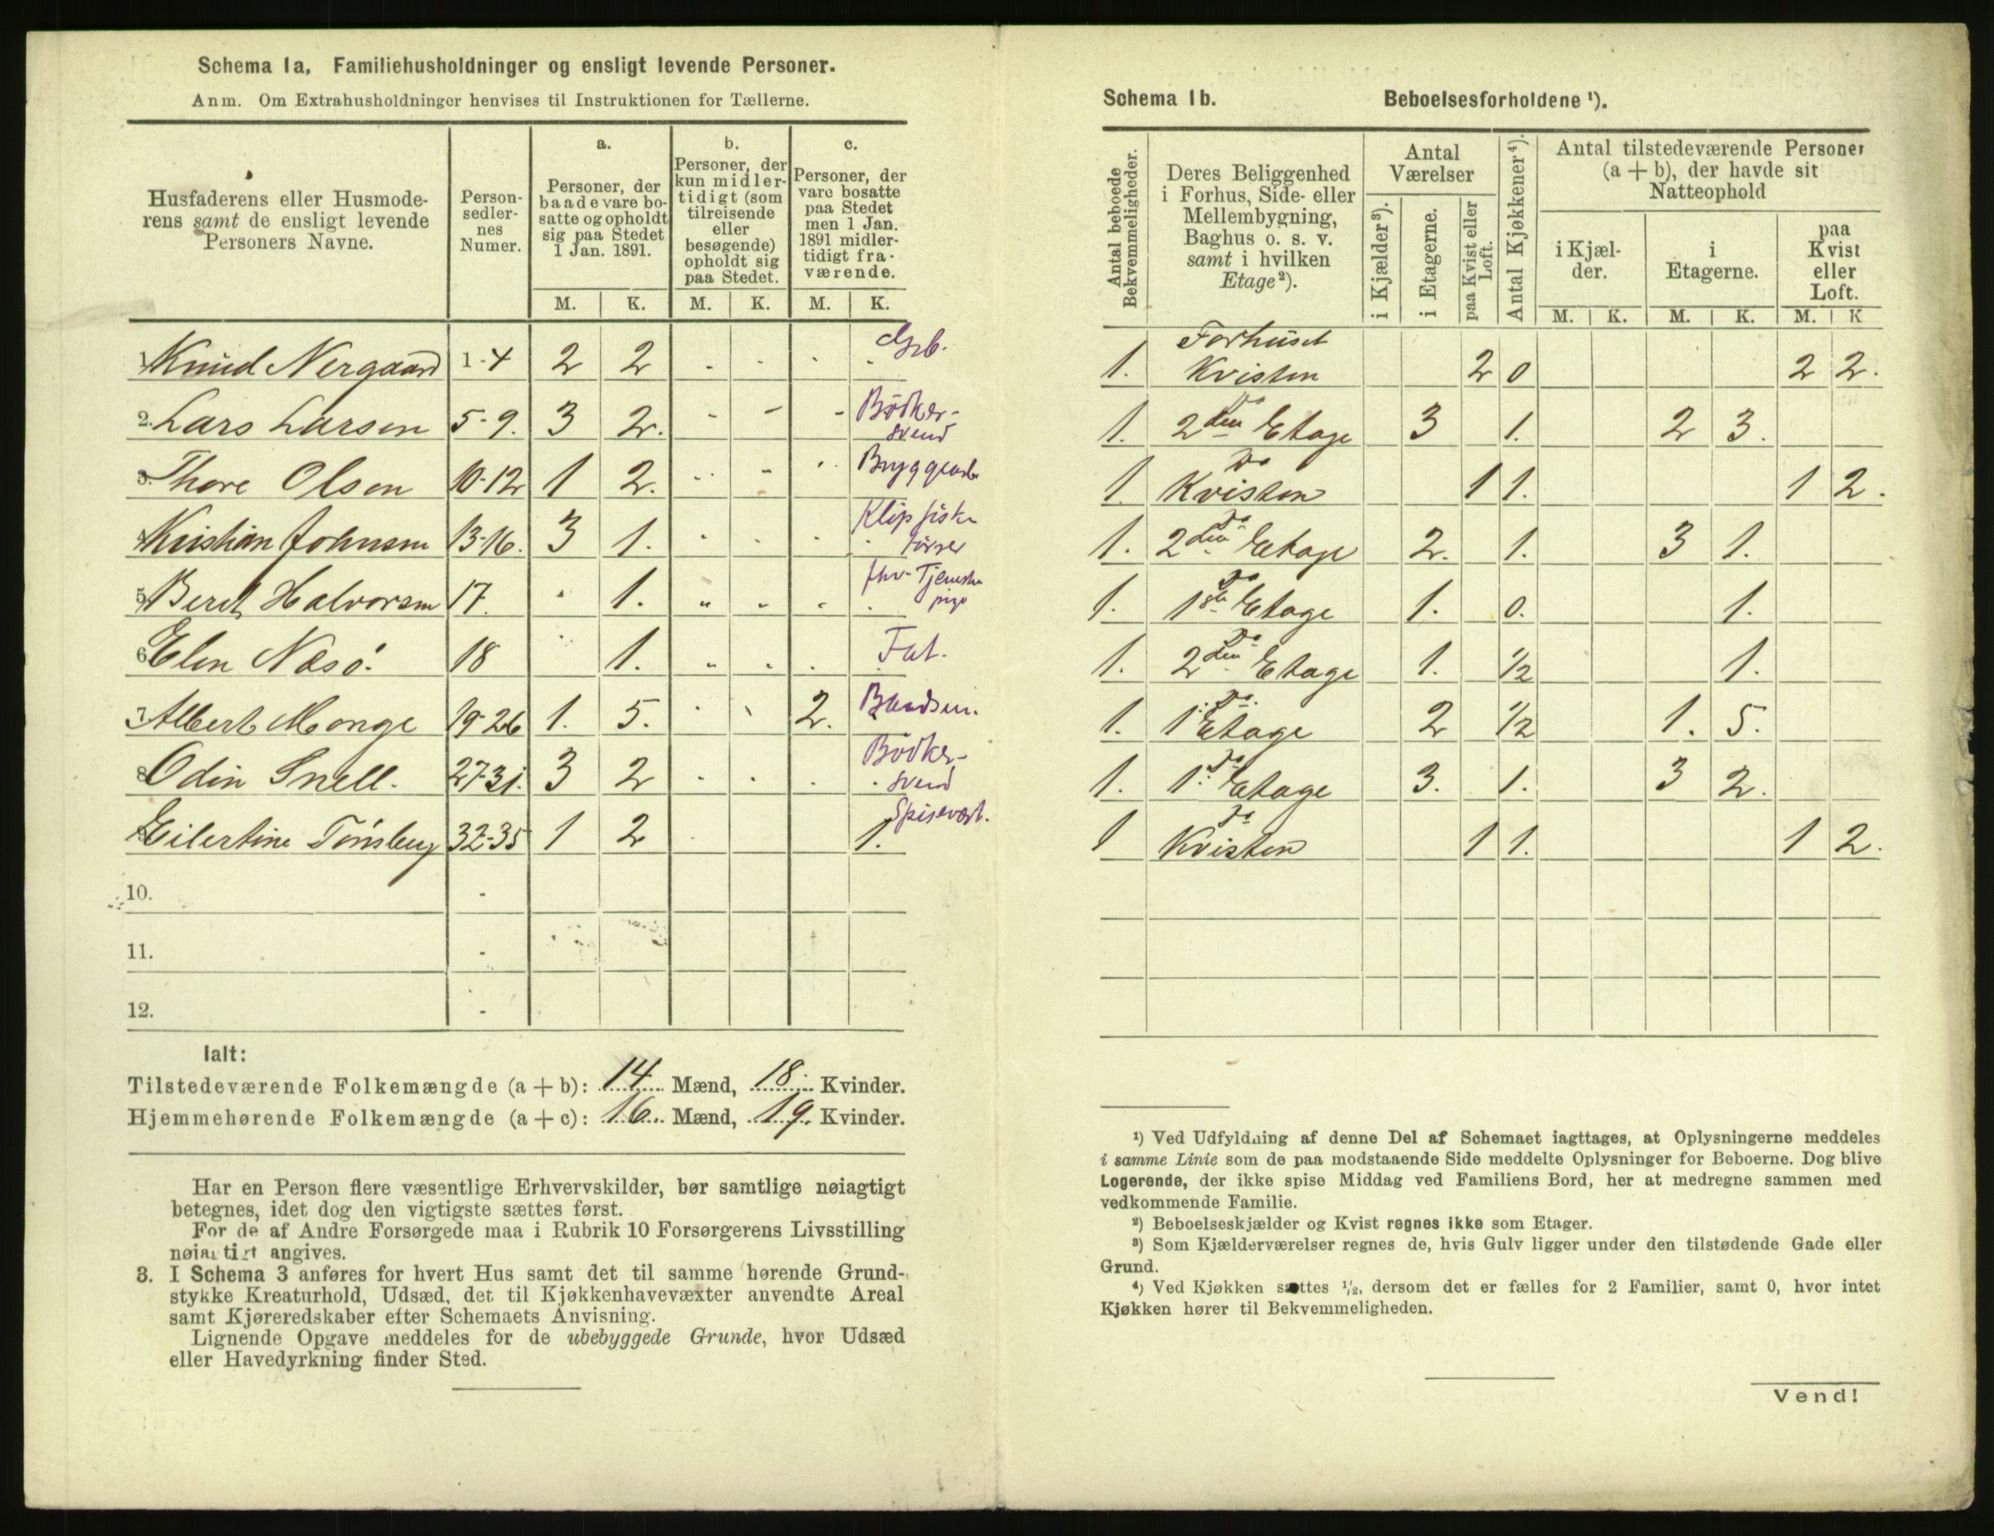 Schema 1a, Familiehusholdninger og ensligt levende Personer.
Anm. Om Extrahusholdninger henvises til Instruktionen for Tællerne.
Husfaderens eller Husmoderens samt de ensligt levende Personers Navne.
Personsedlernes Numer.
a. Personer, der baade vare bosatte og opholdt sig paa Stedet 1 Jan. 1891.
b. Personer, der kun midlertidigt (som tilreisende eller besøgende) opholdt sig paa Stedet.
c. Personer, der vare bosatte paa Stedet men 1 Jan. 1891 midlertidigt fraværende.
M. K. M. K. M. K.
1. Knud Nergaard 1-4 2 2 - - . .
2. Lars Larsen 5-9. 3 2. - - - Bödkersvend
3. Thore Olsen 10-12 1 2. - - . Bryggearb
4. Kristian Johnsen 13-16. 3 1. . . . . Klipfisktörrer
5. Beret Halvorsen 17. . 1. " " . . fhv. Tjenestepige
6 Elen Næsö. 18 1. " . . . Fat.
7. Albert Monge 19-26 1. 5. . . 2.
8. Odin Snell. 27-31. 3 2 . . . . Bödkersvend
9. Eilertine Tönsberg 32-35 1 2 . 1. Spisevært.
10. -
11. -
12. -
Ialt:
Tilstedeværende Folkemængde (a + b): 14 Mænd, 18. Kvinder.
Hjemmehørende Folkemængde (a + c): 16. Mænd, 19. Kvinder.
Har en Person flere væsentlige Erhvervskilder, bør samtlige nøiagtigt
betegnes, idet dog den vigtigste sættes først.
For de af Andre Forsørgede maa i Rubrik 10 Forsørgerens Livsstilling
nøiagtigt angives.
3. I Schema 3 anføres for hvert Hus samt det til samme hørende Grund-
stykke Kreaturhold, Udsæd, det til Kjøkkenhavevæxter anvendte Areal
samt Kjøreredskaber efter Schemaets Anvisning.
Lignende Opgave meddeles for de ubebyggede Grunde, hvor Udsæd
eller Havedyrkning finder Sted.
Schema 1b. Beboelsesforholdene ¹).
Antal beboede Bekvemmeligheder.
Deres Beliggenhed i Forhus, Side- eller Mellembygning, Baghus o. s. v. samt i hvilken Etage²).
Antal Værelser
i Kjælder³).
i Etagerne.
paa Kvist eller Loft.
Antal Kjøkkener⁴).
Antal tilstedeværende Personer (a + b), der havde sit Natteophold
i Kjælder.
i Etagerne.
paa Kvist eller Loft.
M. K. M. K. M. K
1. Forhuset Kvisten 2 0 2 2.
1. Do 2den Etage 3 1. 2 3.
1. Do Kvisten 1 1. 1 2.
1. Do 2den Etage 2. 1. 3 1.
1. Do 1ste Etage 1. 0. 1.
1. Do 2den Etage 1. 1/2 1.
1. Do 1. Etage 2 1/2 1. 5.
1. Do 1. Etage 3. 1. 3 2.
1 Do Kvisten 1 1. 1 2.
¹) Ved Udfyldning af denne Del af Schemaet iagttages, at Oplysningerne meddeles
i samme Linie som de paa modstaaende Side meddelte Oplysninger for Beboerne. Dog blive
Logerende, der ikke spise Middag ved Familiens Bord, her at medregne sammen med
vedkommende Familie.
²) Beboelseskjælder og Kvist regnes ikke som Etager.
³) Som Kjælderværelser regnes de, hvis Gulv ligger under den tilstødende Gade eller
Grund.
⁴) Ved Kjøkken sættes ½, dersom det er fælles for 2 Familier, samt 0, hvor intet
Kjøkken hører til Bekvemmeligheden.
Vend!